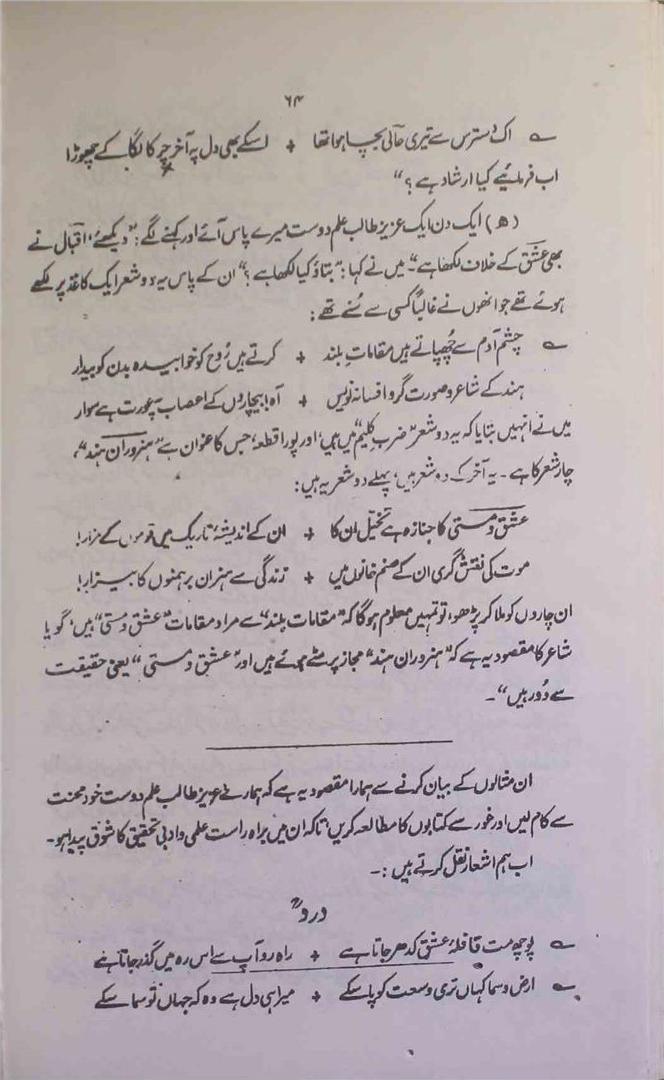 ۶۴
؎ اک دسترس سے تیری حالی بچا ہوا تھا + اسکے بھی دل پہ آخر چرکا لگا کے چھوڑا
اب فرمائیے کیا ارشاد ہے؟"
(ھ) ایک دن ایک عزیز طالب علم دوست میرے پاس آئے اور کہنے لگے: "دیکھئے، اقبال نے
بھی عشق کے خلاف لکھا ہے"۔ میں نے کہا: "بتاؤ کیا لکھا ہے؟" ان کے پاس یہ دو شعر ایک کاغذ پر لکھے
ہوئے تھے جو انھوں نے غالباً کسی سے سُنے تھے:
؎ چشمِ آدم سے چھپاتے ہیں مقاماتِ بلند + کرتے ہیں رُوح کو خوابیدہ بدن کو بیدار
ہند کے شاعر و صورت گر و افسانہ نویس + آہ! بیچاروں کے اعصاب پہ عورت ہے سوار
میں نے انہیں بتایا کہ یہ دو شعر "ضربِ کلیم" میں ہیں، اور پورا قطعہ، جس کا عنوان ہے "ہنروران ہند"،
چار شعر کا ہے۔ یہ آخر کے دو شعر ہیں، پہلے دو شعر یہ ہیں:
عشق و مستی کا جنازہ ہے تخیّل ان کا + ان کے اندیشۂ تاریک میں قوموں کے مزار!
موت کی نقش گری ان کے صنم خانوں میں + زندگی سے ہنر ان برہمنوں کا بیزار!
ان چاروں کو ملا کر پڑھو، تو تمہیں معلوم ہوگا کہ "مقامات بلند" سے مراد مقامات "عشق و مستی" ہیں، گویا
شاعر کا مقصود یہ ہے کہ "ہنروران ہند" مجاز پر مٹے ہوئے ہیں اور "عشق و مستی" یعنی حقیقت
سے دُور ہیں"۔
ان مثالوں کے بیان کرنے سے ہمارا مقصود یہ ہے کہ ہمارے عزیز طالب علم دوست خود محنت
سے کام لیں اور غور سے کتابوں کا مطالعہ کریں تاکہ ان میں براہ راست علمی و ادبی تحقیق کا شوق پیدا ہو۔
اب ہم اشعار نقل کرتے ہیں:۔
دردؔ
؎ پوچھ مت قافلۂ عشق کدھر جاتا ہے + راہ رو آپ سے اس رہ میں گذر جاتا ہے
؎ ارض و سما کہاں تری وسعت کو پا سکے + میرا ہی دل ہے وہ کہ جہاں تو سما سکے